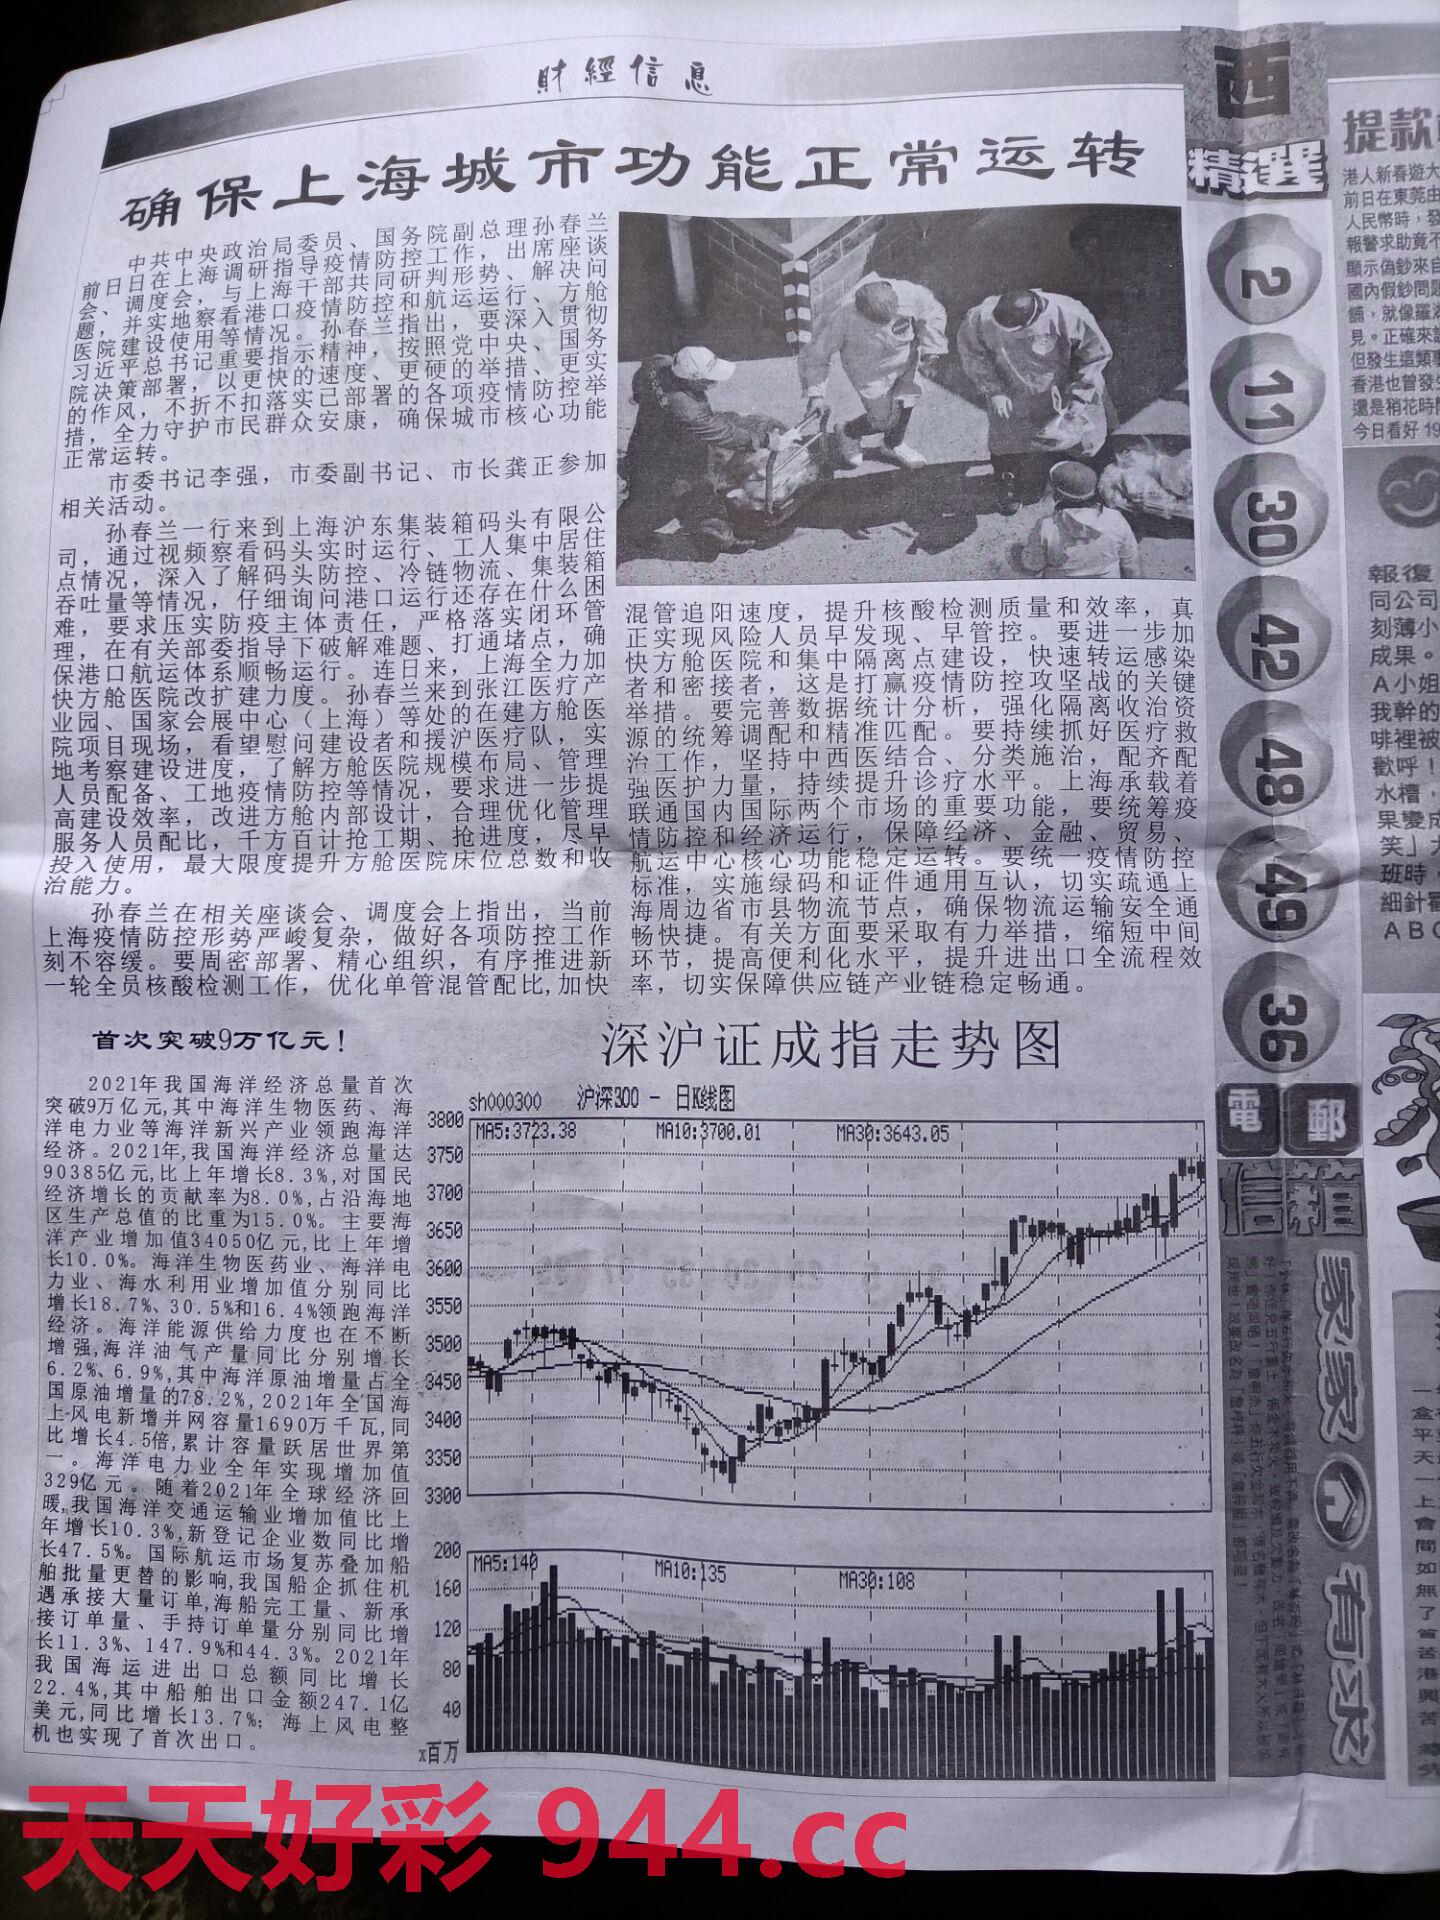 財經信息
确保上海城市功能正常运转
中共中央政治局委员、国务院副总理孙春兰
前日日在上海调研指导疫情防控工作，出席座谈
会、调度会，与上海干部共同研判形势、解决问
题，并实地察看港口疫情防控和航运运行、方舱
医院建设使用等情况。孙春兰指出，要深入贯彻
习近平总书记重要指示精神，按照党中央、国务
院决策部署，以更快的速度、更硬的举措、更实
的作风，不折不扣落实已部署的各项疫情防控举
措，全力守护市民群众安康，确保城市核心功能
正常运转。
市委书记李强，市委副书记、市长龚正参加
相关活动。
孙春兰一行来到上海沪东集装箱码头有限公
司，通过视频察看码头实时运行、工人集中居住
点情况，深入了解码头防控、冷链物流、集装箱
吞吐量等情况，仔细询问港口运行还存在什么困
难，要求压实防疫主体责任，严格落实闭环管
理，在有关部委指导下破解难题、打通堵点，确
保港口航运体系顺畅运行。连日来，上海全力加
快方舱医院改扩建力度。孙春兰来到张江医疗产
业园、国家会展中心（上海）等处的在建方舱医
院项目现场，看望慰问建设者和援沪医疗队，实
地考察建设进度，了解方舱医院规模布局、管理
人员配备、工地疫情防控等情况，要求进一步提
高建设效率，改进方舱内部设计，合理优化管理
服务人员配比，千方百计抢工期、抢进度，尽早
投入使用，最大限度提升方舱医院床位总数和收
治能力。
孙春兰在相关座谈会、调度会上指出，当前
上海疫情防控形势严峻复杂，做好各项防控工作
刻不容缓。要周密部署、精心组织，有序推进新
一轮全员核酸检测工作，优化单管混管配比,加快
混管追阳速度，提升核酸检测质量和效率，真
正实现风险人员早发现、早管控。要进一步加
快方舱医院和集中隔离点建设，快速转运感染
者和密接者，这是打赢疫情防控攻坚战的关键
举措。要完善数据统计分析，强化隔离收治资
源的统筹调配和精准匹配。要持续抓好医疗救
治工作，坚持中西医结合、分类施治，配齐配
强医护力量，持续提升诊疗水平。上海承载着
联通国内国际两个市场的重要功能，要统筹疫
情防控和经济运行，保障经济、金融、贸易、
航运中心核心功能稳定运转。要统一疫情防控
标准，实施绿码和证件通用互认，切实疏通上
海周边省市县物流节点，确保物流运输安全通
畅快捷。有关方面要采取有力举措，缩短中间
环节，提高便利化水平，提升进出口全流程效
率，切实保障供应链产业链稳定畅通。
首次突破9万亿元！
2021年我国海洋经济总量首次
突破9万亿元,其中海洋生物医药、海
洋电力业等海洋新兴产业领跑海洋
经济。2021年,我国海洋经济总量达
90385亿元,比上年增长8.3%,对国民
经济增长的贡献率为8.0%,占沿海地
区生产总值的比重为15.0%。主要海
洋产业增加值34050亿元,比上年增
长10.0%。海洋生物医药业、海洋电
力业、海水利用业增加值分别同比
增长18.7%、30.5%和16.4%领跑海洋
经济。海洋能源供给力度也在不断
增强,海洋油气产量同比分别增长
6.2%、6.9%,其中海洋原油增量占全
国原油增量的78.2%,2021年全国海
上风电新增并网容量1690万千瓦,同
比增长4.5倍,累计容量跃居世界第
一。海洋电力业全年实现增加值
329亿元。随着2021年全球经济回
暖,我国海洋交通运输业增加值比上
年增长10.3%,新登记企业数同比增
长47.5%。国际航运市场复苏叠加船
舶批量更替的影响,我国船企抓住机
遇承接大量订单,海船完工量、新承
接订单量、手持订单量分别同比增
长11.3%、147.9%和44.3%。2021年
我国海运进出口总额同比增长
22.4%,其中船舶出口金额247.1亿
美元,同比增长13.7%；海上风电整
机也实现了首次出口。
深沪证成指走势图
sh000300 沪深300 - 日K线图
MA5:3723.38 MA10:3700.01 MA30:3643.05
3800
3750
3700
3650
3600
3550
3500
3450
3400
3350
3300
MA5:140 MA10:135 MA30:108
200
160
120
80
40
x百万
西
精選
2
11
30
42
48
49
36
電郵
信箱
家家有求
提款
港人新春遊大
前日在東莞由
人民幣時，發
報警求助竟不
顯示偽鈔來自
國內假鈔問題
舖，就像羅湖
見。正確來說
但發生這類事
香港也曾發生
還是稍花時間
今日看好19
報復
同公司
刻薄小
成果。
A小姐
我幹的
啡裡被
歡呼！
水槽，
果變成
笑」大
班時，
細針
ABC
天天好彩 944.cc